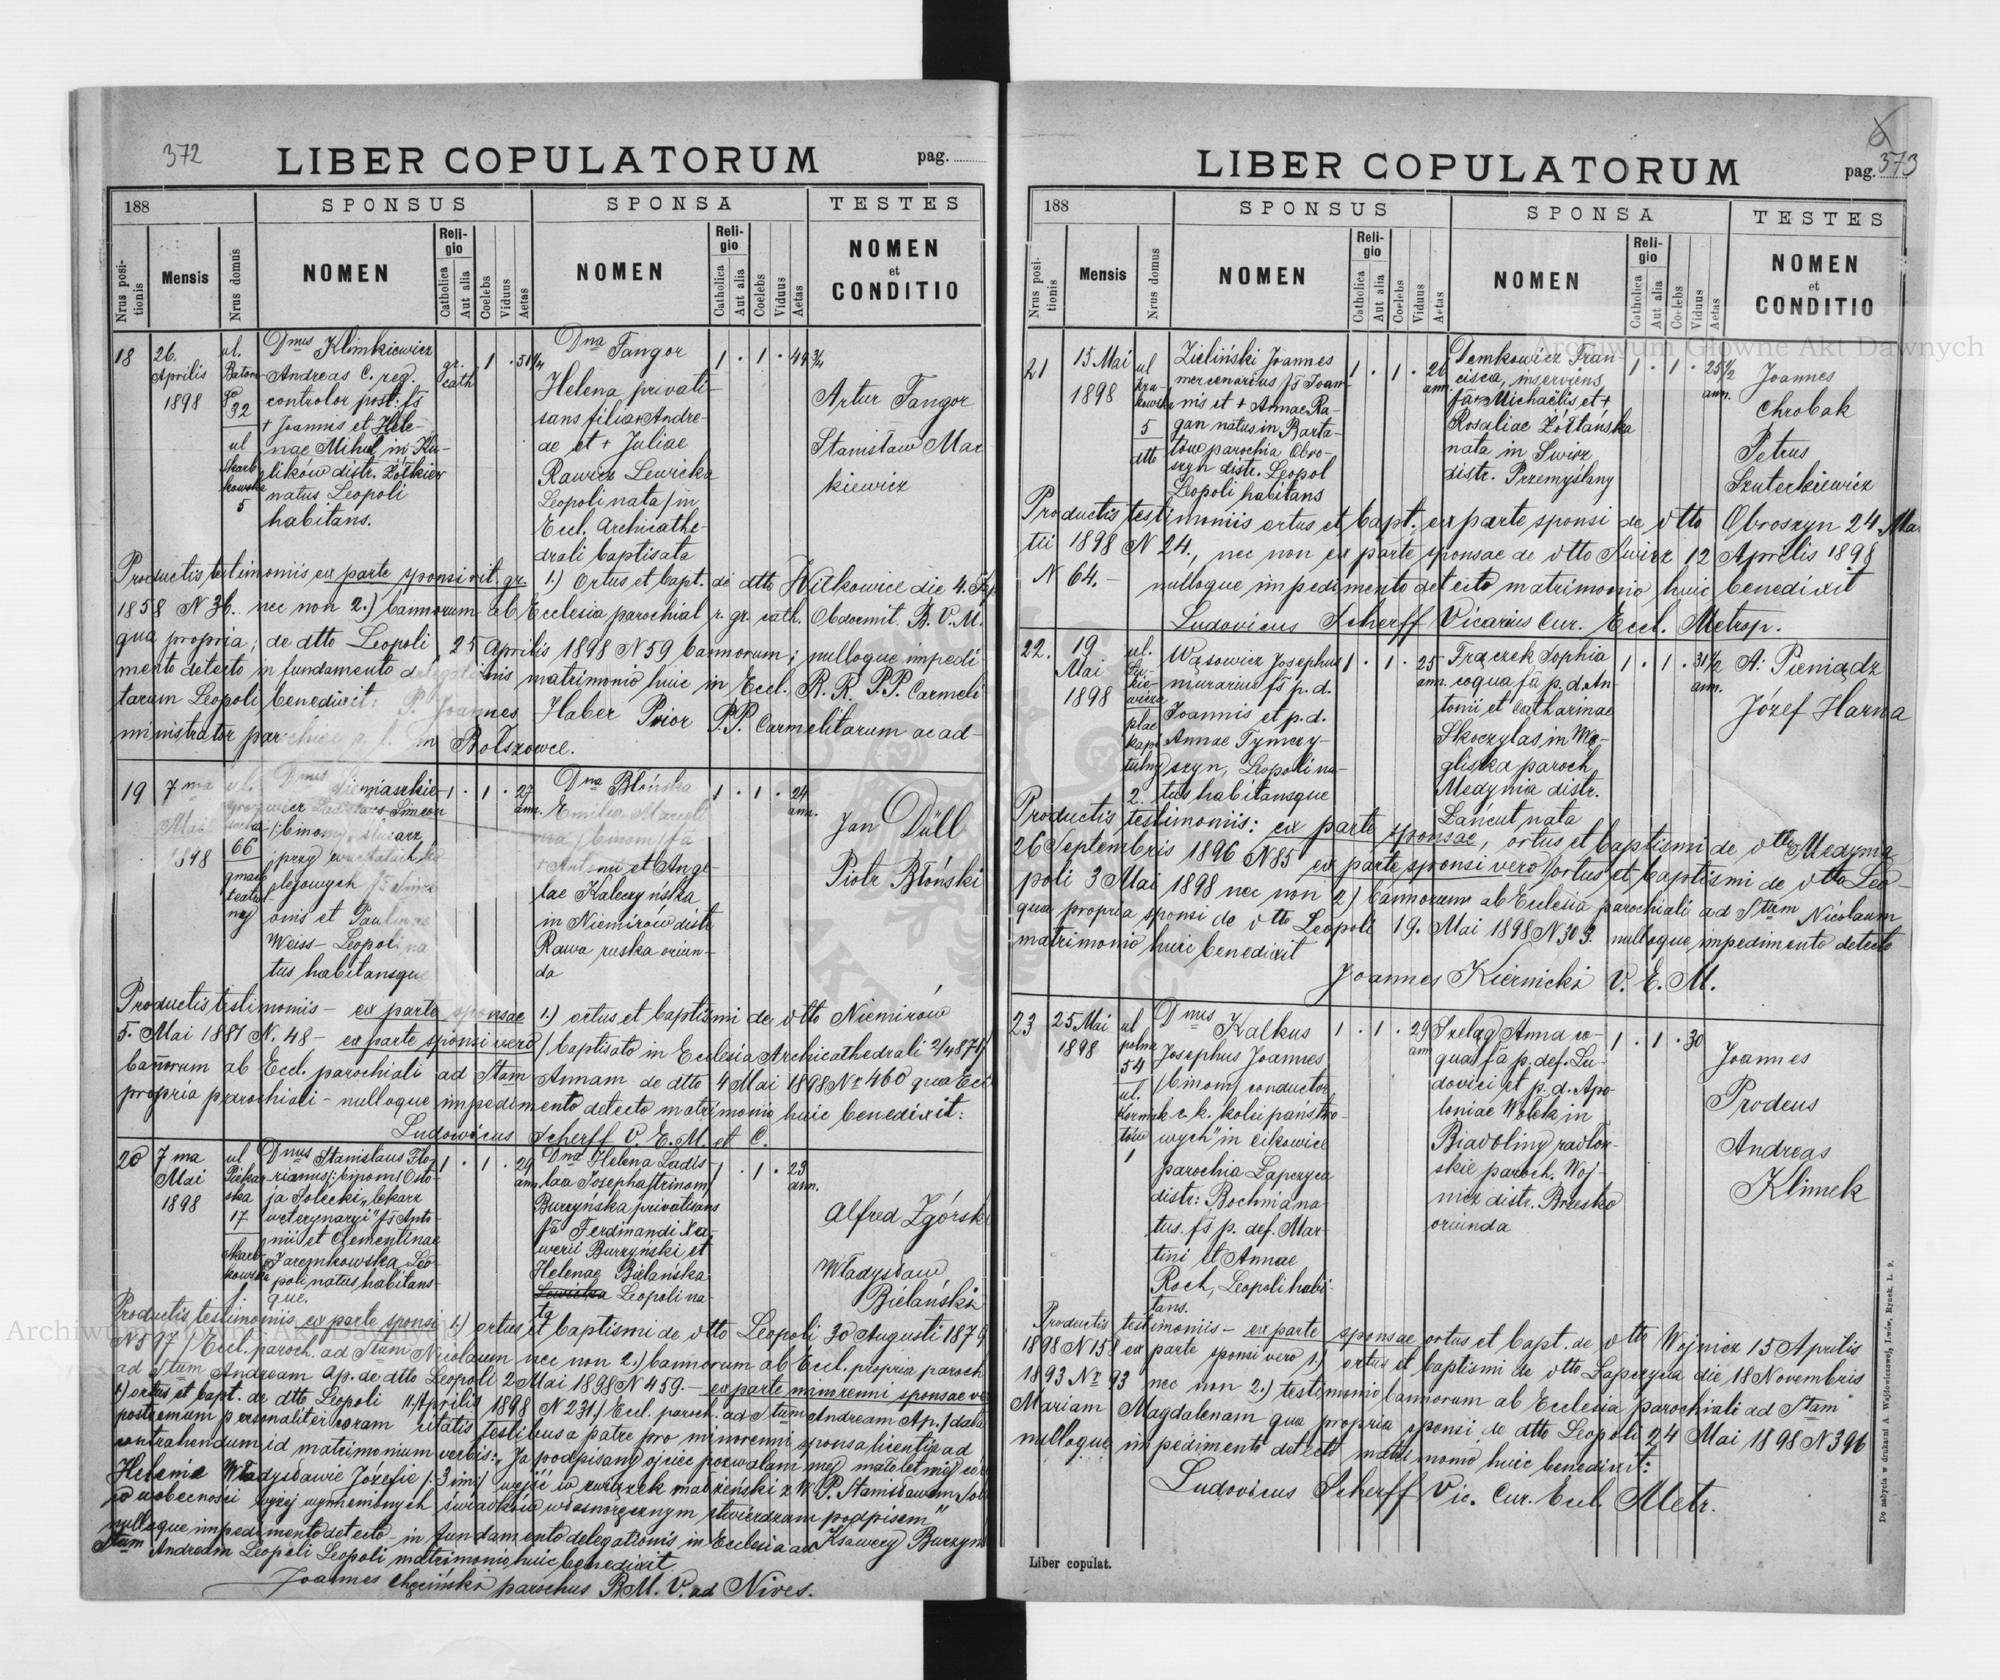 372
LIBER COPULATORUM
pag.
188
SPONSUS
SPONSA
TESTES
Nrus positionis
Mensis
Nrus domus
NOMEN
Religio
Catholica
Aut alia
Coelebs
Viduus
Aetas
NOMEN
Religio
Catholica
Aut alia
Coelebs
Viduus
Aetas
NOMEN
et
CONDITIO
18
26.
Aprilis
1898
ul.
32
ul
5
Dnus Klimkiewicz
Andreas C. reg.
controlor post: fs
+ Joannis et Hele-
nae Mihul in Ku-
lików distr. Żółkiew
natus Leopoli
habitans.
gr.
cath
1 .
Dna Fangor
Helena privati-
sans filia + Andre-
ae et + Juliae
Rawicz Lewicka
Leopoli nata / in
Eccl. Archicathe-
drali baptisata
1 . 1 . 49 3/4
Artur Fangor
Stanisław Mac
kiewicz
Productis testimoniis ex parte sponsi rit. gr. 1.) Ortus et bapt. de dtto Witkowice die 4.
1858 N 36. nec non 2.) bannorum ab Ecclesia parochial r. gr. cath. Obdormit. B. V. M.
qua propria; de dtto Leopoli, 25 Aprilis 1898 N 59 bannorum; nulloque impedi-
mento detecto in fundamento delegationis matrimonio huic in Eccl. R. R. P.P. Carmeli-
tarum Leopoli benedixit: P. Joannes Haber Prior P.P. Carmelitarum ac ad-
ministrator Bołszowce.
19
7 ma
Mai
1898
ul.
66
gmach
teatral
nej
Dnus
Simeon
/:binom/
przy warsztatach ko
lejowych fs Sime
onis et Paulinae
Weiss - Leopoli na
tus habitansque
1 . 1 . 27
ann.
Dna Błońska
Emilia
/ binom / fa
+ Antonii et Ange-
lae Kaleczyńska
in Niemirów distr
Rawa ruska oriun-
da
1 . 1 . 24
ann.
Jan Düll
Piotr Błoński
Productis testimoniis - ex parte sponsae 1.) ortus et baptismi de dtto Niemirów
5. Mai 1881 N. 48 - ex parte sponsi vero / baptisato in Ecclesia Archicathedrali
bannorum ab Eccl. parochiali ad Stam Annam de dtto 4 Mai 1898 Nr 460 qua Eccl
propria parochiali - nulloque impedimento detecto matrimonio huic benedixit:
Ludovicus Scherff V. E. M. et C.
20
7 ma
Mai
1898
ul
Piekar
ska
17
Skarb
kowska
Dnus Stanislaus Flo-
rianus /:binom/ Osto-
ja Solecki, "lekarz
weterynaryi" fs Anto-
nii et Clementinae
Jaremkowska Leo-
poli natus habitans-
que.
1 . 1 . 29
ann.
Dna Helena Ladis-
laa Josepha /trinom/
Burzyńska privatisans
fa Ferdinandi Xa-
werii Burzyński et
Helenae Bielańska
Lewicka Leopoli na-
ta
1 . 1 . 23
ann.
Alfred Zgórski
Władysław
Bielański
Productis testimoniis ex parte sponsi 1.) ortus et baptismi de dtto Leopoli 30 Augusti 1879
N 597 / Eccl. paroch. ad Stum Nicolaum nec non 2.) bannorum ab Eccl. propria paroch
ad Stum Andream Ap. de dtto Leopoli 2 Mai 1898 N 459. - ex parte minorenni sponsae vero
1.) ortus et bapt. de dtto Leopoli 11. Aprilis 1898 N 231 / Eccl. paroch. ad Stum Andream Ap. / data
postremum personaliter coram citatis testibus a patre pro minorenni sponsa licentia ad
contrahendum id matrimonium verbis: "Ja podpisany ojciec pozwalam mej małoletniej córce
Helenie Władysławie Józefie /:3 im:/ wejść w związek małżeński z W. P. Stanisławem Sol
co w obecności wyżej wymienionych świadków własnoręcznym stwierdzam podpisem"
nulloque impedimento detecto - in fundamento delegationis in Ecclesia ad Ksawery Burzyń
Stum Andream Leopoli Leopoli matrimonio huic benedixit
Joannes Chęciński parochus B.M.V. ad Nives.
LIBER COPULATORUM
pag. 373
188
SPONSUS
SPONSA
TESTES
Nrus positionis
Mensis
Nrus domus
NOMEN
Religio
Catholica
Aut alia
Coelebs
Viduus
Aetas
NOMEN
Religio
Catholica
Aut alia
Coelebs
Viduus
Aetas
NOMEN
et
CONDITIO
21
15 Mai
1898
ul
Kra
kowska
5
dtto
Zieliński Joannes
mercenarius fs Joan-
nis et + Annae Ra-
gan natus in Barta-
tów parochia Obro-
szyn distr. Leopol
Leopoli habitans
1 . 1 . 26
ann.
Demkowicz Fran
cisca, inserviens,
fa Michaelis et +
Rosaliae Żółtańska
nata in Swirz
distr. Przemyślany
1 . 1 . 25 1/2
ann.
Joannes
Chrobak
Petrus
Szuterkiewicz
Productis testimoniis ortus et bapt. ex parte sponsi de dtto Obroszyn 24 Mar
tii 1898 N 24., nec non ex parte sponsae de dtto Swirz 12 Aprilis 1898
N 64. - nulloque impedimento detecto matrimonio huic benedixit
Ludovicus Scherff Vicarius Cur. Eccl. Metrop.
22.
19
Mai
1898
ul.
plac
kapi
tulny
2.
Wąsowicz Josephus
murarius fs p. d.
Joannis et p. d.
Annae Tymczy-
szyn, Leopoli na-
tus habitansque
1 . 1 . 25
ann.
Frączek Sophia
coqua fa p. d. An-
tonii et Catharinae
Skoczylas in Wę-
gliska paroch
Medynia distr.
Łańcut nata
1 . 1 . 31 1/2
ann.
A: Pieniądz
Józef Harna
Productis testimoniis: ex parte sponsae, ortus et baptismi de dtto Medynia
26 Septembris 1896 N 85 ex parte sponsi vero / ortus et baptismi de dtto Leo-
poli 3 Mai 1898 nec non 2) bannorum ab Ecclesia parochiali ad Stum Nicolaum
qua propria sponsi de dtto Leopoli 19. Mai 1898 N 303. nulloque impedimento detecto
matrimonio huic benedixit
Joannes Kiernicki V. E. M.
23
25 Mai
1898
ul
polna
54
ul.
1
Dnus Kalkus
Josephus Joannes
/binom/ conductor
c. k. kolei państwo-
wych" in Cikowice
parochia Łapczyca
distr: Bochnia na-
tus. fs p. def. Mar-
tini et Annae
Roch, Leopoli habi-
tans.
1 . 1 . 29
ann
Szeląg Anna co-
qua fa p. def. Lu-
dovici et p. d. Apo-
loniae Wołek in
Biadoliny radłow-
skie paroch. Woj-
nicz distr. Brzesko
oriunda
1 . 1 . 30
Joannes
Prodeus
Andreas
Klimek
Productis testimoniis - ex parte sponsae ortus et bapt. de dtto Wojnicz 15 Aprilis
1898 N 158 ex parte sponsi vero 1.) ortus et baptismi de dtto Łapczyca die 18 Novembris
1893 Nr 93 nec non 2.) testimonio bannorum ab Ecclesia parochiali ad Stam
Mariam Magdalenam qua propria sponsi de dtto Leopoli 24 Mai 1898 N 396
nulloque impedimento detecto matrimonio huic benedixit:
Ludovicus Scherff Vic. Cur. Eccl. Metr.
Liber copulat.
Do nabycia w drukarni A. Wajdowiczowej, Lwów, Rynek, L. 9.
Archiwum Główne Akt Dawnych
Archiwum Główne Akt Dawnych